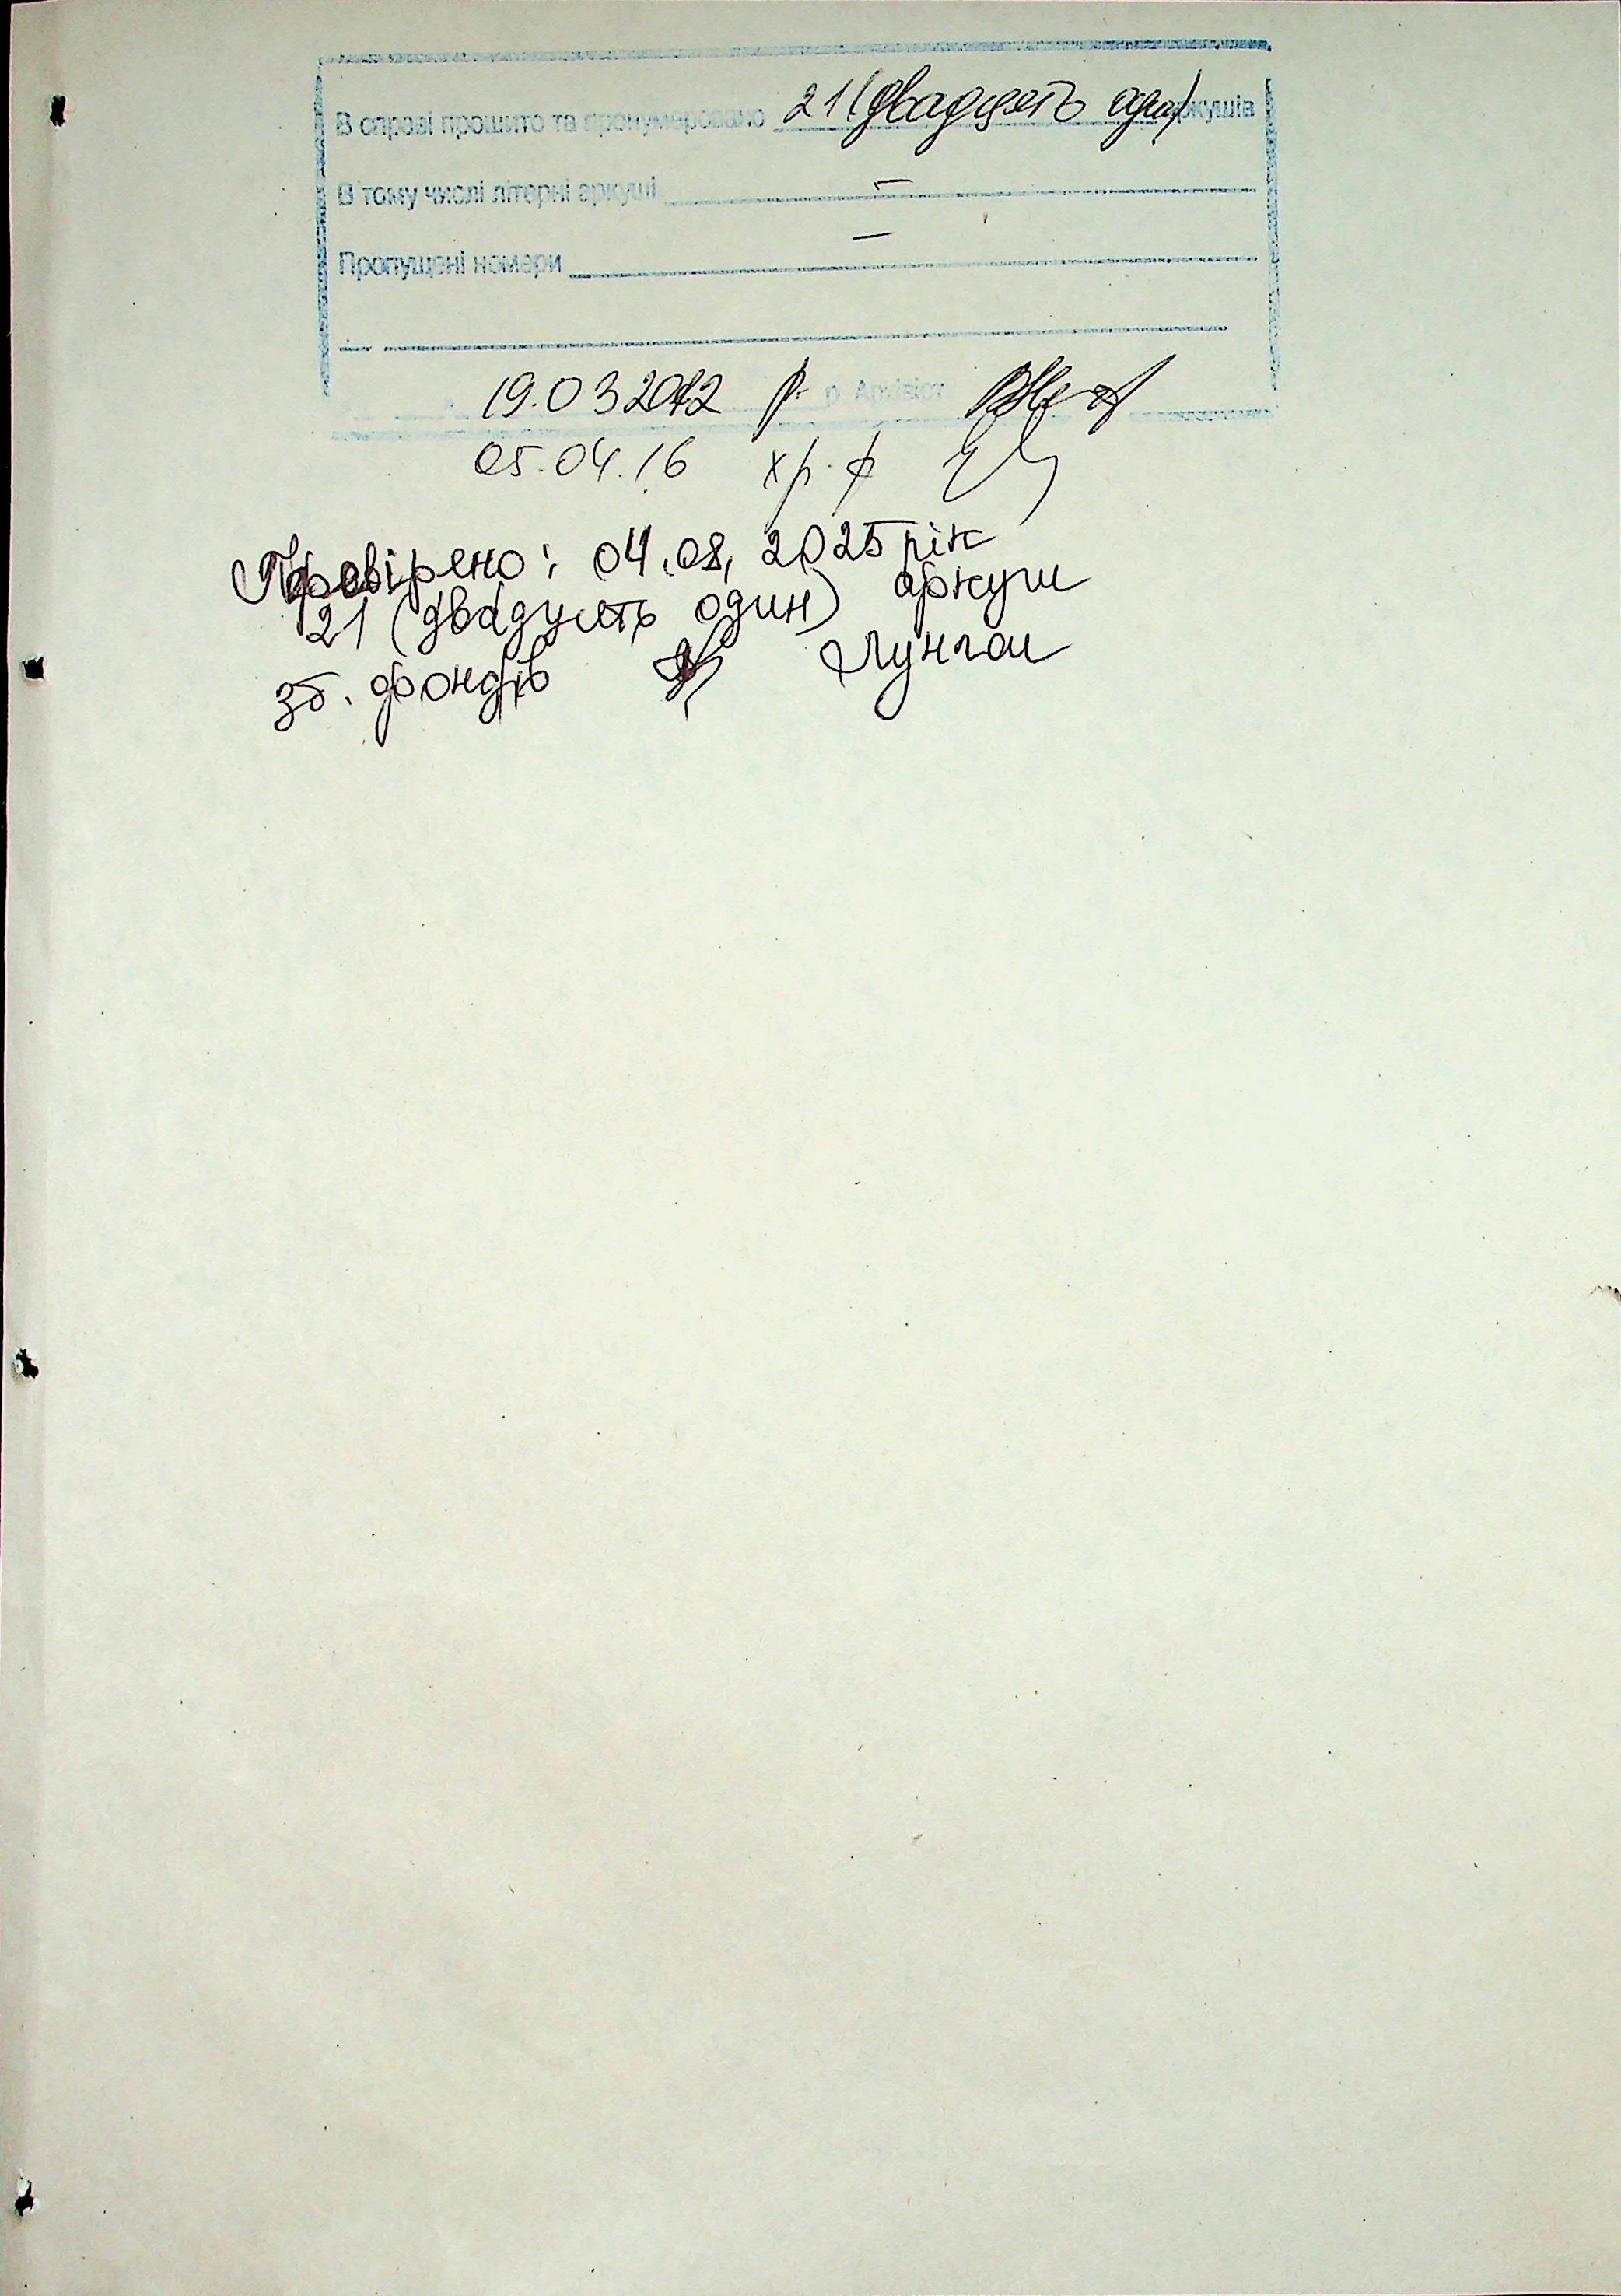 В справі прошито та пронумеровано 21 (двадцять один) аркушів
В тому числі літерні аркуші —
Пропущені номери —
19.03 2012 р. Архівіст
05.04.16 хр. ф
Перевірено: 04.08, 2025 рік
21 (двадцять один) аркуш
зб. фондів Лунгол